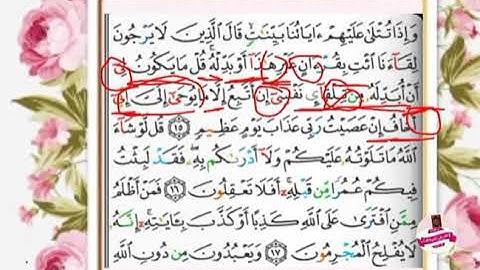 وَإِذَا تُتْلَىٰ عَلَيْهِمْ ءَايَاتُنَا بَيِّنَٰتٍ قَالَ الَّذِينَ لَا يَرْجُونَ
لِقَآءَنَا ائْتِ بِقُرْءَانٍ غَيْرِ هَٰذَآ أَوْ بَدِّلْهُ قُلْ مَا يَكُونُ لِىٓ
أَنْ أُبَدِّلَهُۥ مِن تِلْقَآئِ نَفْسِىٓ إِنْ أَتَّبِعُ إِلَّا مَا يُوحَىٰٓ إِلَىَّ إِنِّىٓ
أَخَافُ إِنْ عَصَيْتُ رَبِّى عَذَابَ يَوْمٍ عَظِيمٍ ١٥ قُل لَّوْ شَآءَ
اللَّهُ مَا تَلَوْتُهُۥ عَلَيْكُمْ وَلَآ أَدْرَىٰكُم بِهِۦ فَقَدْ لَبِثْتُ
فِيكُمْ عُمُرًا مِّن قَبْلِهِۦٓ أَفَلَا تَعْقِلُونَ ١٦ فَمَنْ أَظْلَمُ
مِمَّنِ افْتَرَىٰ عَلَى اللَّهِ كَذِبًا أَوْ كَذَّبَ بِـَٔايَٰتِهِۦٓ إِنَّهُۥ
لَا يُفْلِحُ الْمُجْرِمُونَ ١٧ وَيَعْبُدُونَ مِن دُونِ اللَّهِ